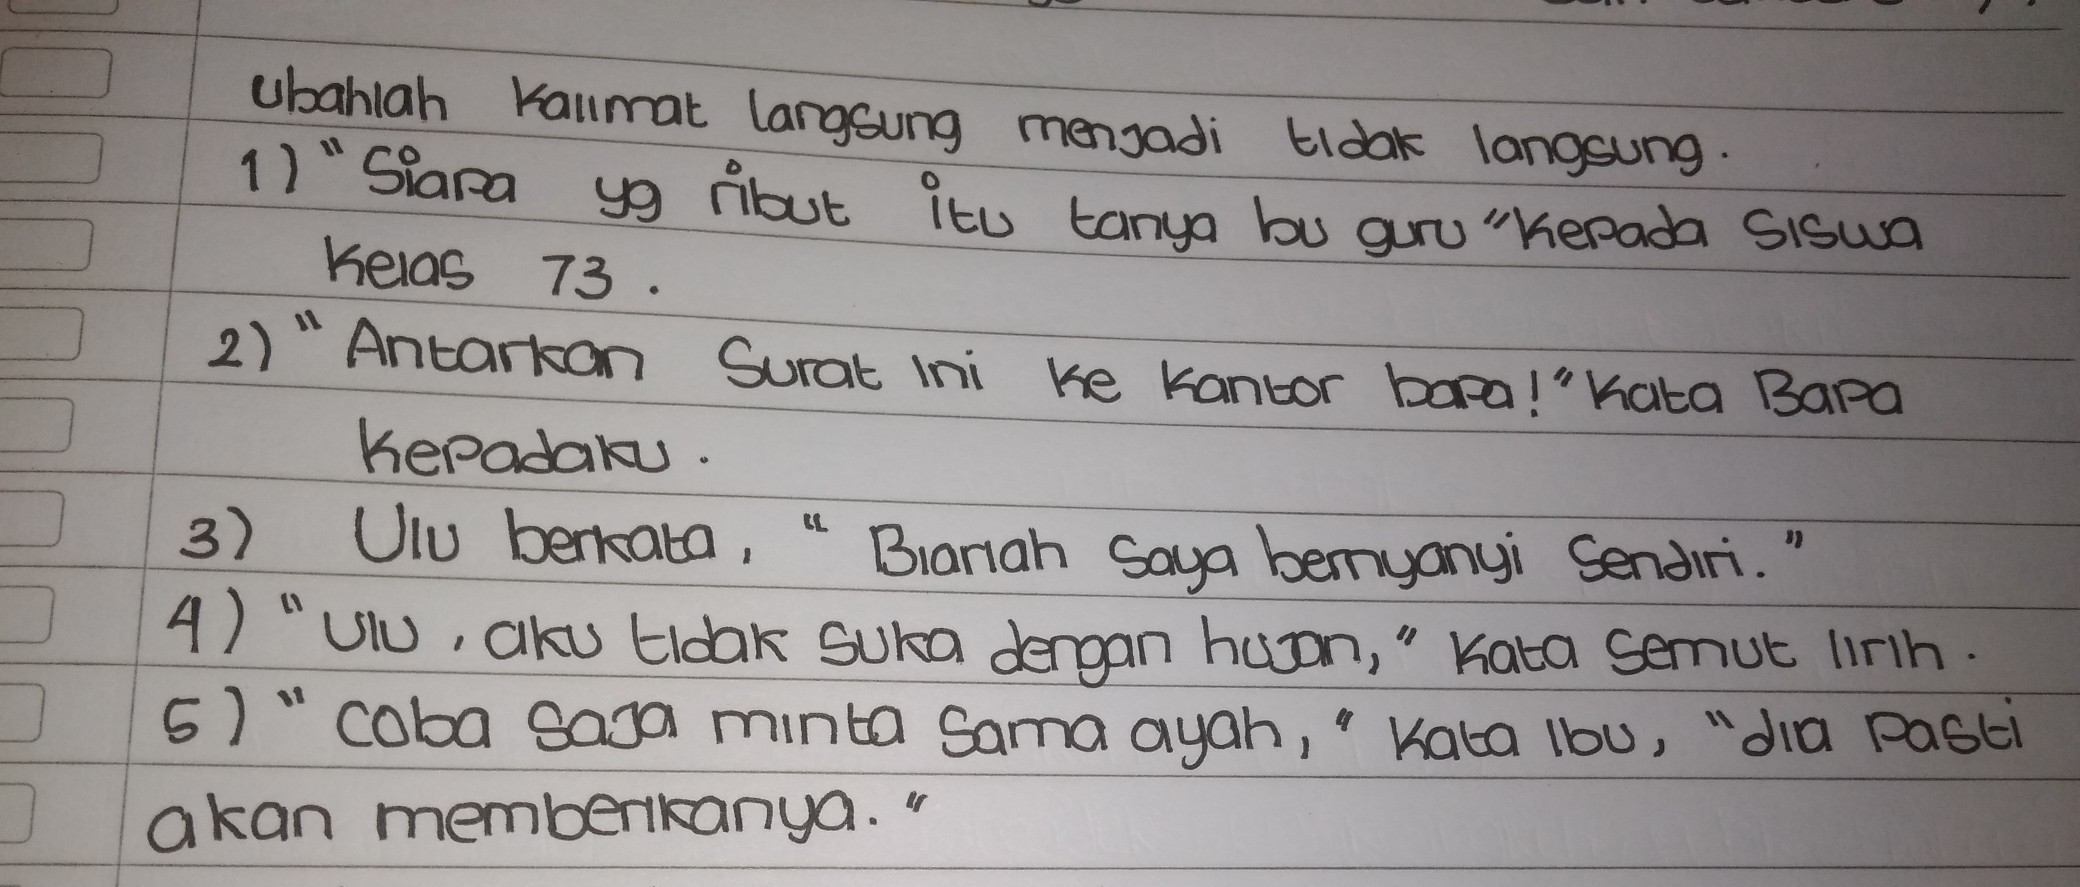 Ubahlah kalimat langsung menjadi tidak langsung.
1) "Siapa yg ribut itu tanya bu guru "kepada siswa
kelas 73.
2) "Antarkan surat ini ke kantor bapa!" kata Bapa
kepadaku.
3) Ulu berkata, "Biarlah saya bernyanyi sendiri."
4) "Ulu, aku tidak suka dengan hujan," kata semut lirih.
5) "coba saja minta sama ayah," kata Ibu, "dia pasti
akan memberikanya."